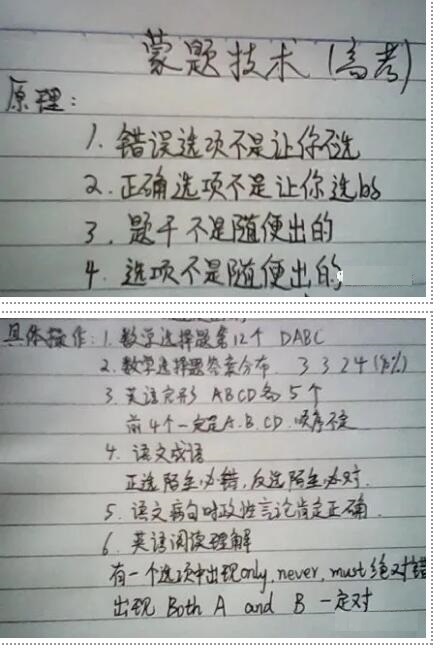 蒙题技术(高考)
原理:
1. 错误选项不是让你不选
2. 正确选项不是让你选的
3. 题干不是随便出的
4. 选项不是随便出的
具体操作: 1. 数学选择题第12个 DABC
2. 数学选择题答案分布. 3 3 2 4 (90%)
3. 英语完形 ABCD各5个
前4个一定是A.B.CD.顺序不定
4. 语文成语
正选陌生必错,反选陌生必对.
5. 语文病句时政性言论肯定正确.
6. 英语阅读理解
有一个选项中出现only, never, must 绝对错
出现 Both A and B 一定对